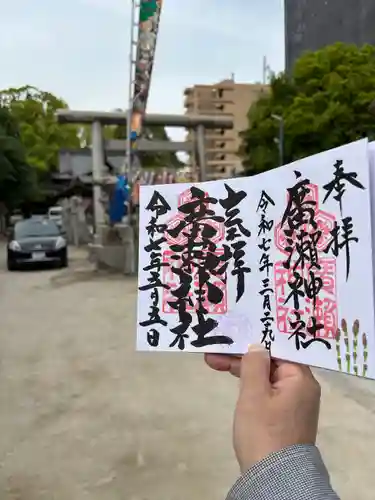 奉拝
廣瀬神社
令和七年三月二九日
奉拝
廣瀬神社
令和七年五月五日